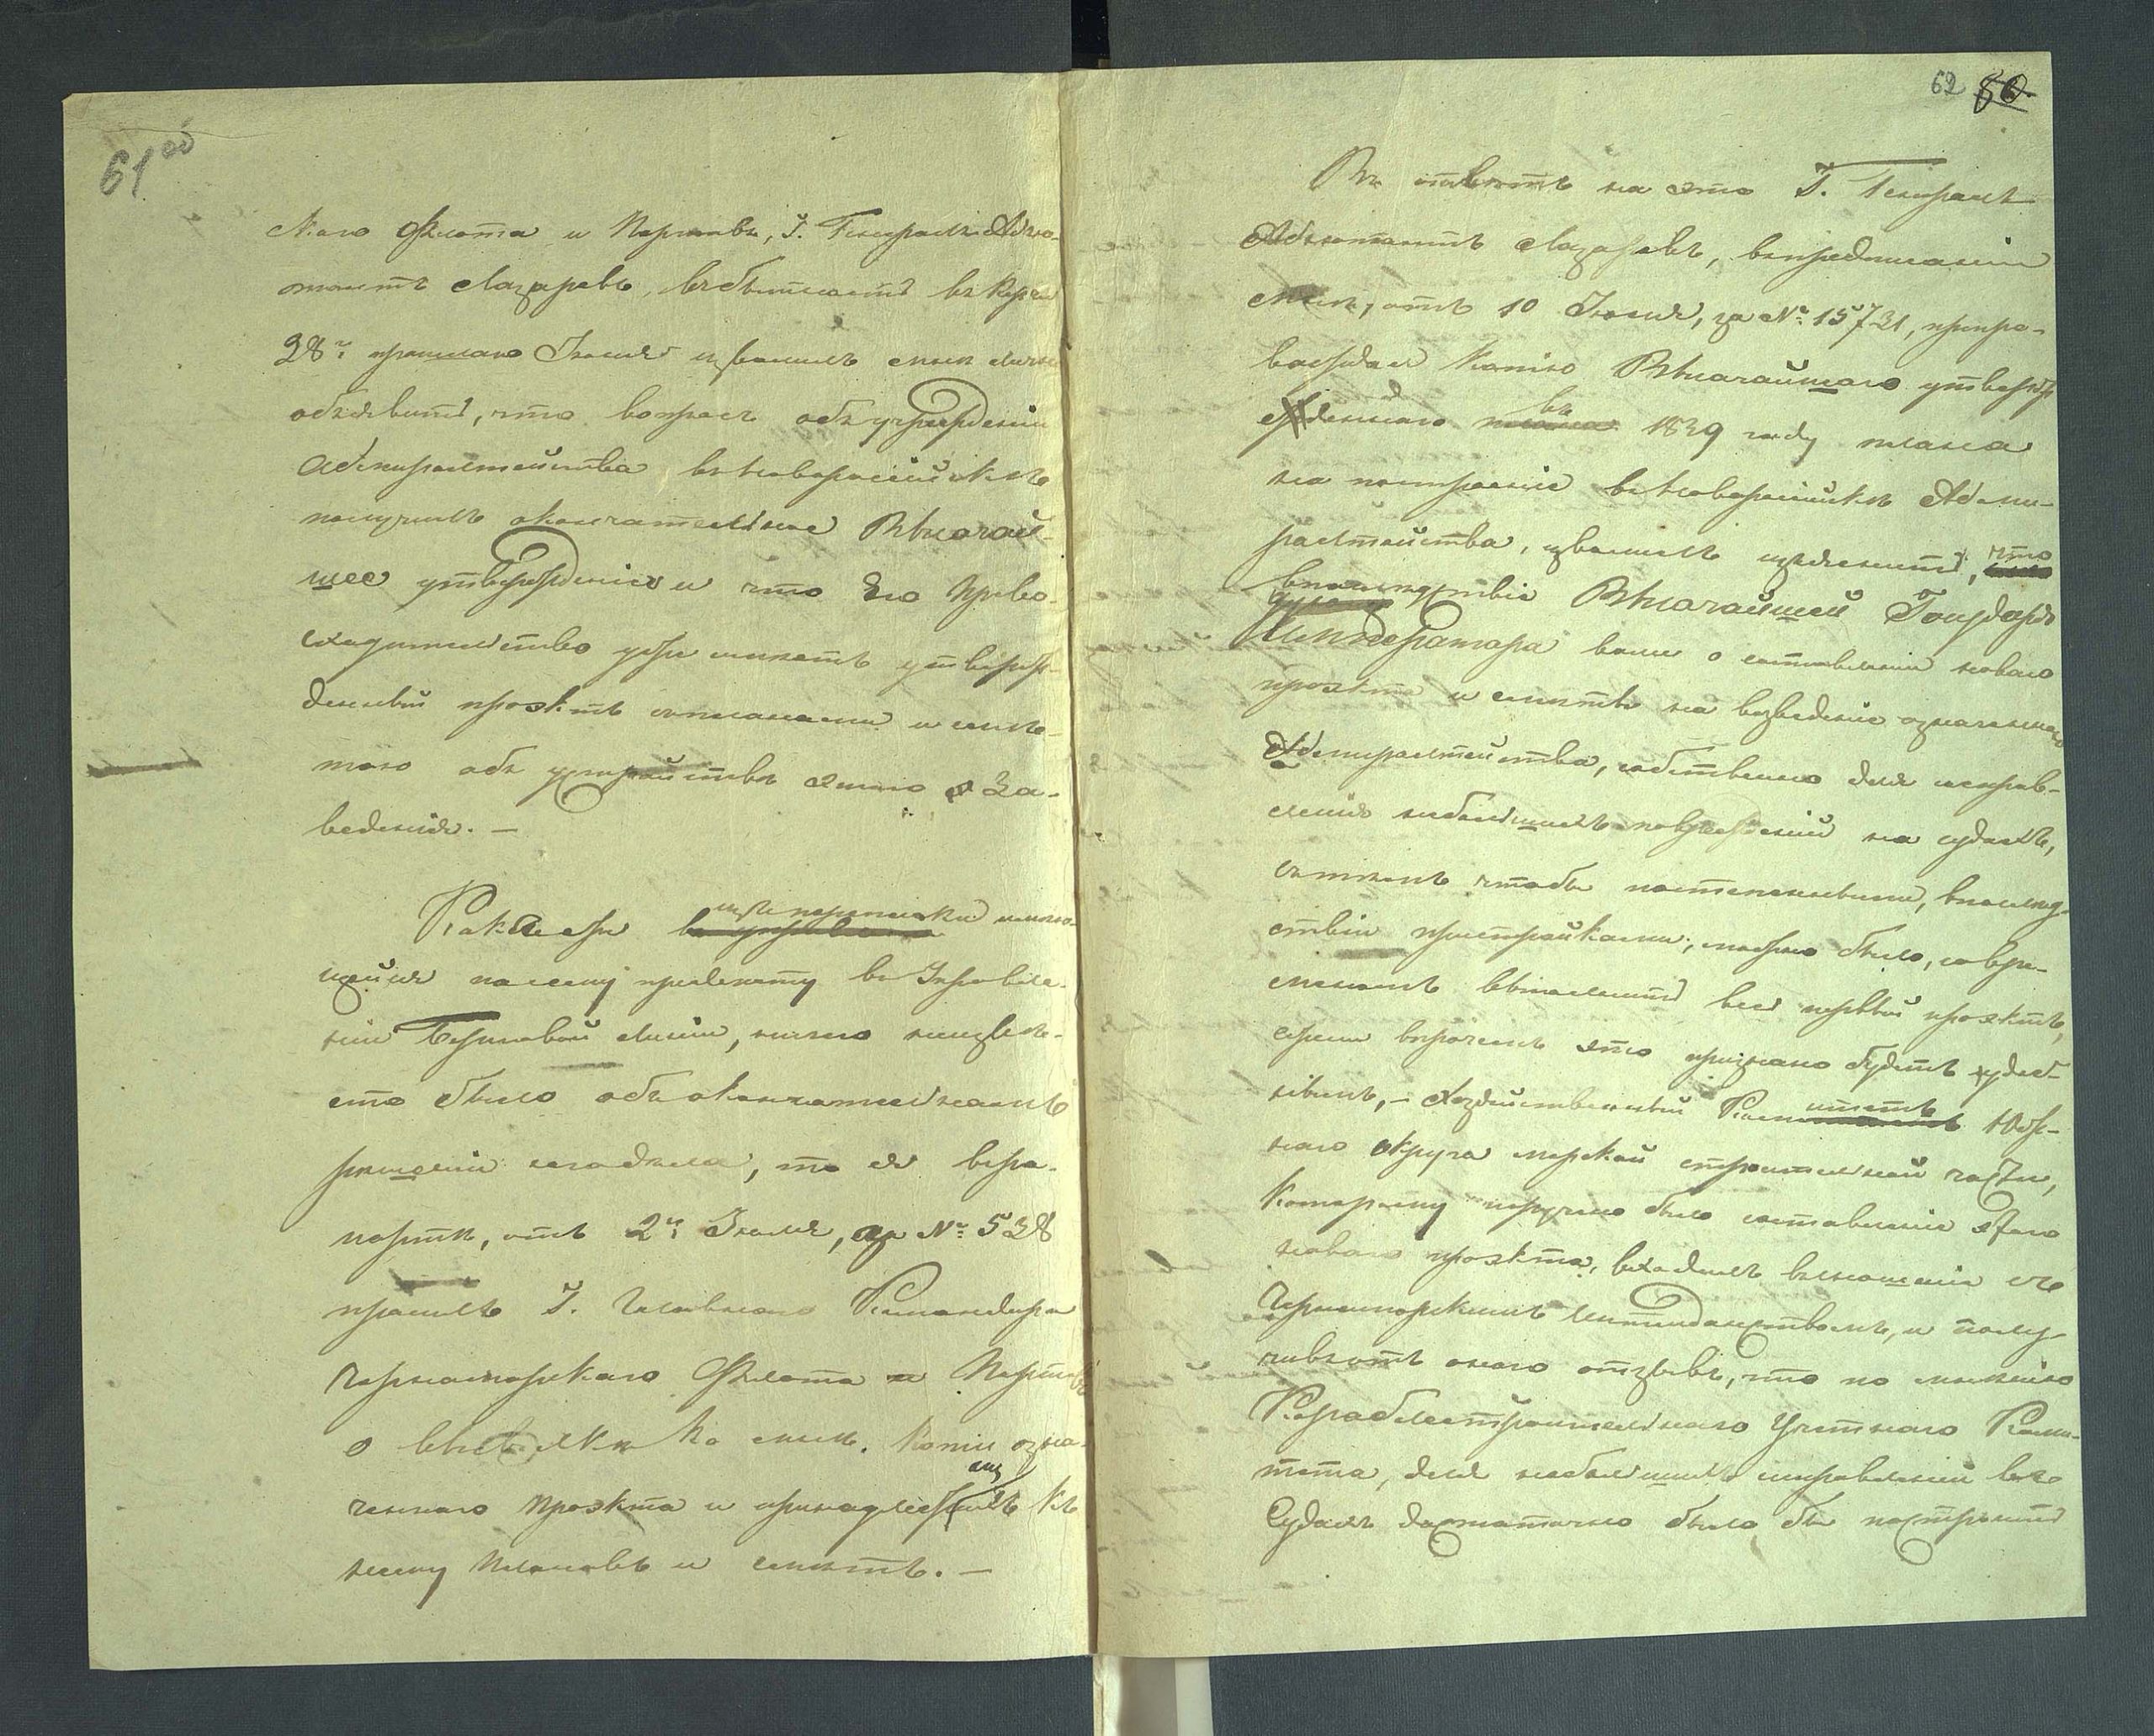 61 об
скаго Флота и Портовъ, Г. Генералъ Адъю-
тантъ Лазаревъ, въ бытность въ Керчи
28го прошлаго Іюня изволилъ мнѣ лично
объявить, что вопросъ объ учрежденіи
Адмиралтейства въ Новороссійскѣ
получилъ окончательное Высочай-
шее утвержденіе и что Его Прево-
сходительство уже имѣетъ утверж-
денный проэктъ съ планами и смѣ-
тою объ устройствѣ этаго За-
веденія. —
Какъ изъ переписки имѣю-
щейся по сему предмету въ Управле-
ніи Береговой Линіи, ничего неизвѣ-
стно было объ окончательномъ
рѣшеніи сего дѣла, то я въ ра-
портѣ, отъ 2го Іюля, за № 538
просилъ Г. Главнаго Командира
Черноморскаго Флота и Портовъ
о высылкѣ ко мнѣ копіи озна-
ченнаго проэкта и принадлежащихъ къ
нему плановъ и смѣтъ. —
62 60
Въ отвѣтъ на это Г. Генералъ
Адъютантъ Лазаревъ, въ предписаніи
мнѣ, отъ 10 Іюля, за № 15731, препро-
вождая копію Высочайшаго утверж-
деннаго въ 1839 году плана
на построеніе въ Новороссійскѣ Адми-
ралтейства, изволилъ изъяснить, что
въ послѣдствіе Высочайшей Государя
Императора воли о составленіи новаго
проэкта и смѣты на возведеніе означеннаго
Адмиралтейства, собственно для исправ-
ленія небольшихъ поврежденій на судахъ,
съ тѣмъ чтобы постепенными, въ послѣд-
ствіи пристройками, можно было, со вре-
менемъ выполнить весь первый проэктъ,
ежели впрочемъ это признано будетъ удоб-
нымъ, — Хозяйственный Комитетъ Юж-
наго округа морской строительной части,
которому поручено было составленіе этаго
новаго проэкта, входилъ въ сношеніе съ
Черноморскимъ Интендантствомъ, и полу-
чивъ отъ онаго отзывъ, что по мнѣнію
Кораблестроительнаго Учетнаго Коми-
тета, для небольшихъ исправленій въ
Судахъ достаточно было бы построить